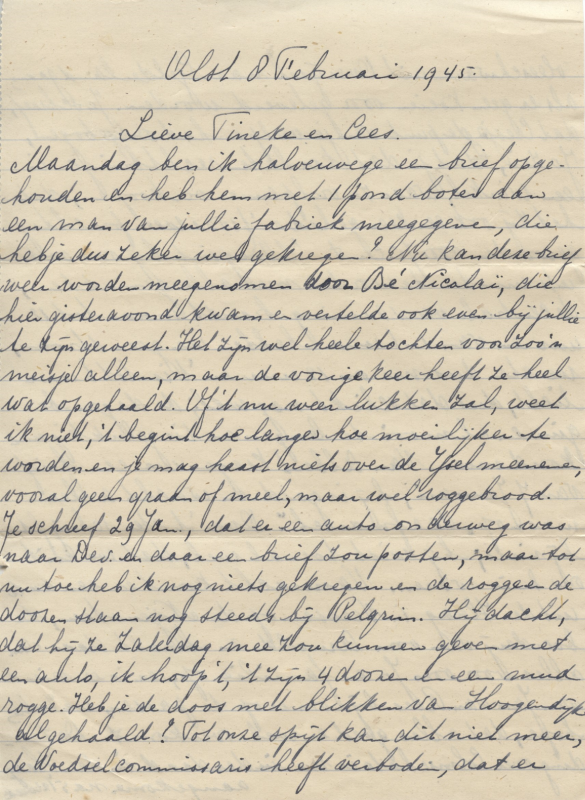 Olst 8 Februari 1945.
Lieve Tineke en Cees.
Maandag ben ik halverwege een brief opge-
houden en heb hem met 1 pond boter aan
een man van jullie fabriek meegegeven, die
heb je dus zeker wel gekregen? Nu kan deze brief
weer worden meegenomen door Bé Nicolaï, die
hier gisteravond kwam en vertelde ook even bij jullie
te zijn geweest. Het zijn wel heele tochten voor zoo'n
meisje alleen, maar de vorige keer heeft ze heel
wat opgehaald. Of 't nu weer lukken zal, weet
ik niet, 't begint hoe langer hoe moeilijker te
worden en je mag haast niets over de IJsel meenemen,
vooral geen graan of meel, maar wel roggebrood.
Je schreef 29 Jan., dat er een auto onderweg was
naar Dev. en daar een brief zou posten, maar tot
nu toe heb ik nog niets gekregen en de rogge en de
doozen staan nog steeds bij Pelgrim. Hij dacht,
dat hij ze Zaterdag mee zou kunnen geven met
een auto, ik hoop 't, 't zijn 4 doozen en een mud
rogge. Heb je de doos met blikken van Hoogendijk
al gehaald? Tot onze spijt kan dit niet meer,
de Voedselcommissaris heeft verboden, dat er